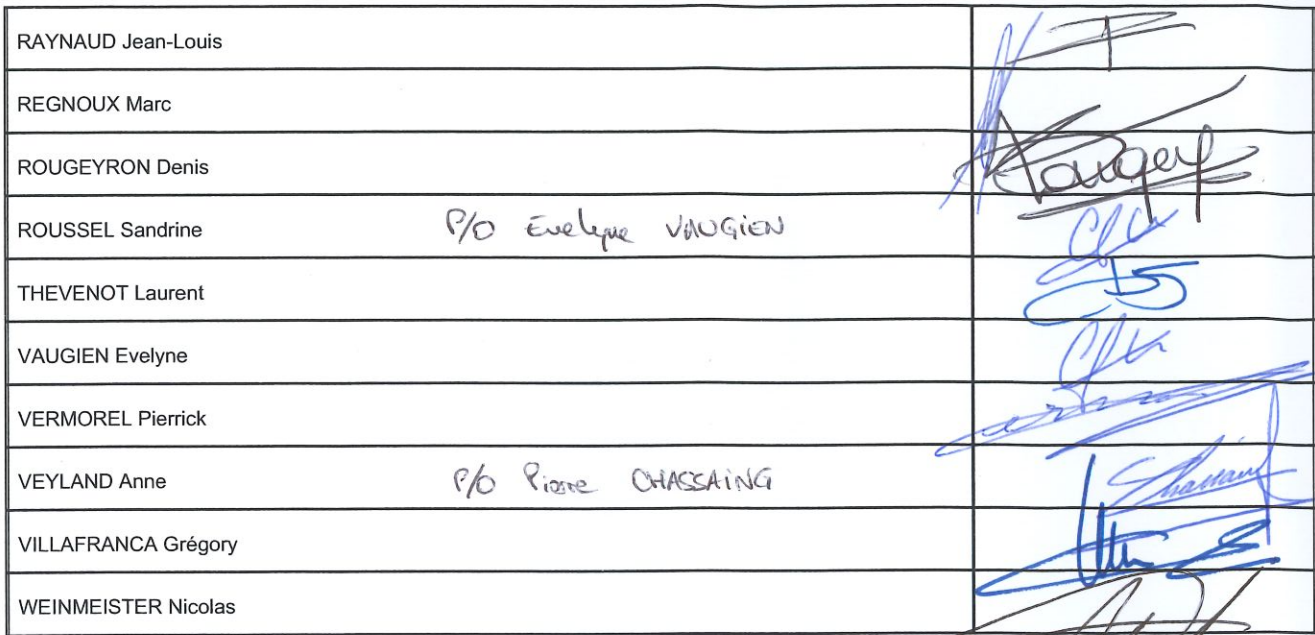 RAYNAUD Jean-Louis
REGNOUX Marc
ROUGEYRON Denis
ROUSSEL Sandrine P/O Evelyne VAUGIEN
THEVENOT Laurent
VAUGIEN Evelyne
VERMOREL Pierrick
VEYLAND Anne P/O Pierre CHASSAING
VILLAFRANCA Grégory
WEINMEISTER Nicolas